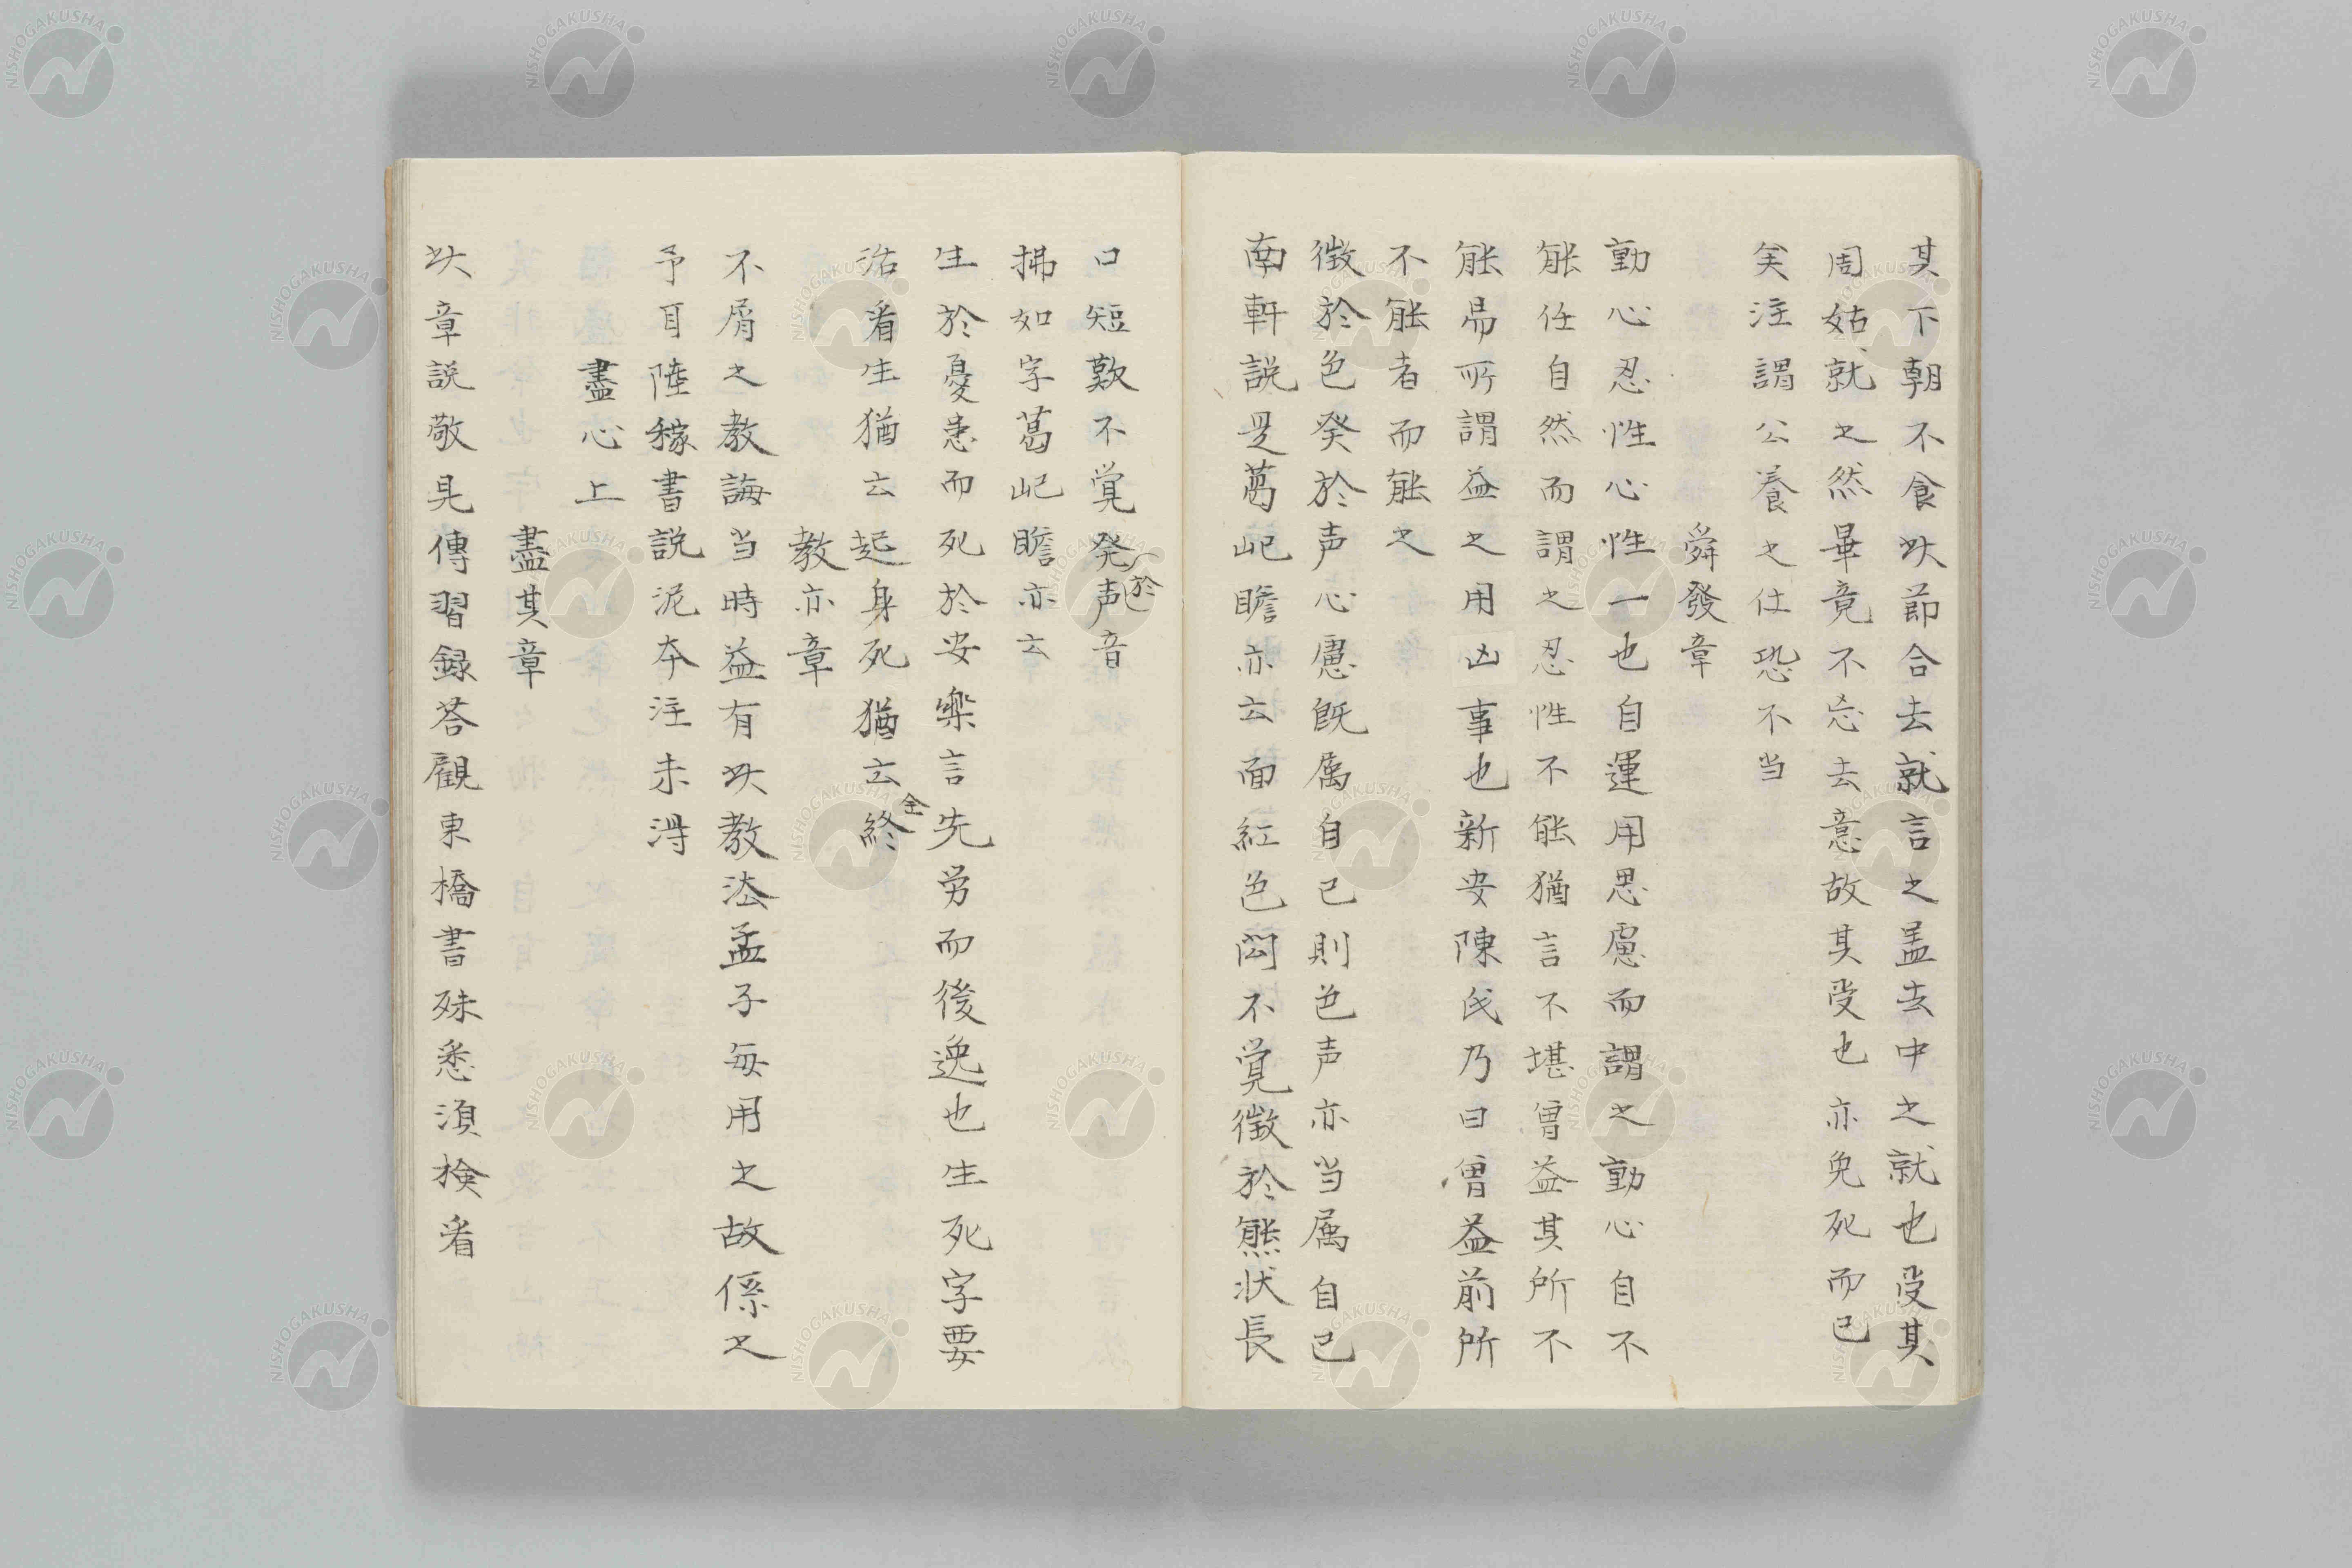 其下朝不食以節合去就言之盖去中之就也受其
周姑就之然畢竟不忘去意故其受也亦免死而已
矣注謂公養之仕恐不当
舜發章
動心忍性心性一也自運用思慮而謂之動心自不
能任自然而謂之忍性不能猶言不堪曽益其所不
能昜所謂益之用凶事也新安陳氏乃曰曽益前所
不能者而能之
徴於色癸於声心慮既属自己則色声亦当属自己
南軒説是葛屺瞻亦云面紅色悶不覚徴於態状長
口短歎不覚癸於声音
拂如字葛屺瞻亦云
生於憂患而死於安楽言先労而後逸也生死字要
活看生猶云起身死猶云全終
教亦章
不屑之教誨当時益有以教法孟子毎用之故係之
予耳陸稼書説泥本注未得
盡心上
盡其章
以章説敬具傳習録荅顧東橋書殊悉須検看